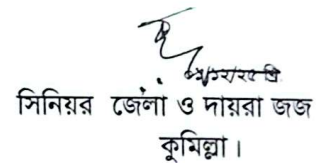 সিনিয়র জেলা ও দায়রা জজ
কুমিল্লা।